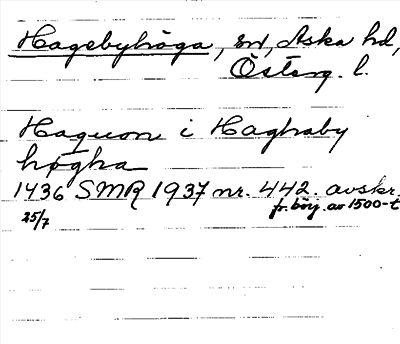 Hagebyhöga, sn, Aska hd,
Österg. l.
Haquon i Haghaby
høgha
1436 SMR 1937 nr. 442. avskr.
25/7 fr. börj. av 1500-t